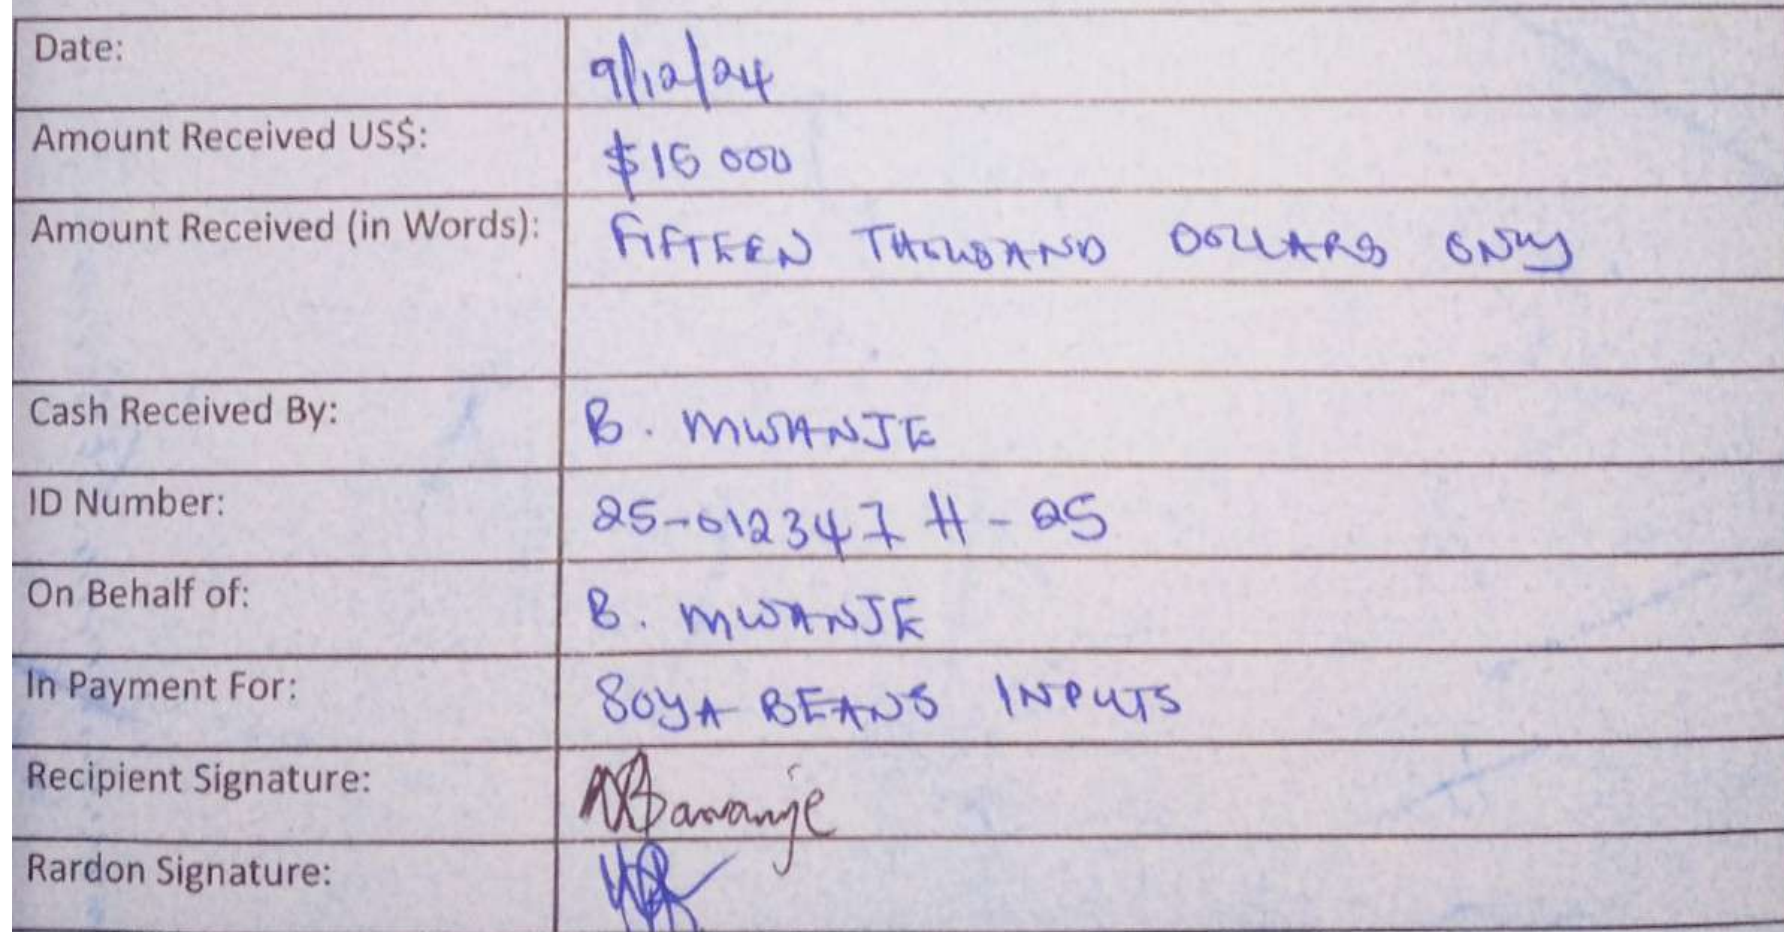 Date: 9/12/24
Amount Received US$: $15 000
Amount Received (in Words): FIFTEEN THOUSAND DOLLARS ONLY
Cash Received By: B. MWANJE
ID Number: 25-012347 H - 25
On Behalf of: B. MWANJE
In Payment For: SOYA BEANS INPUTS
Recipient Signature:
Rardon Signature: